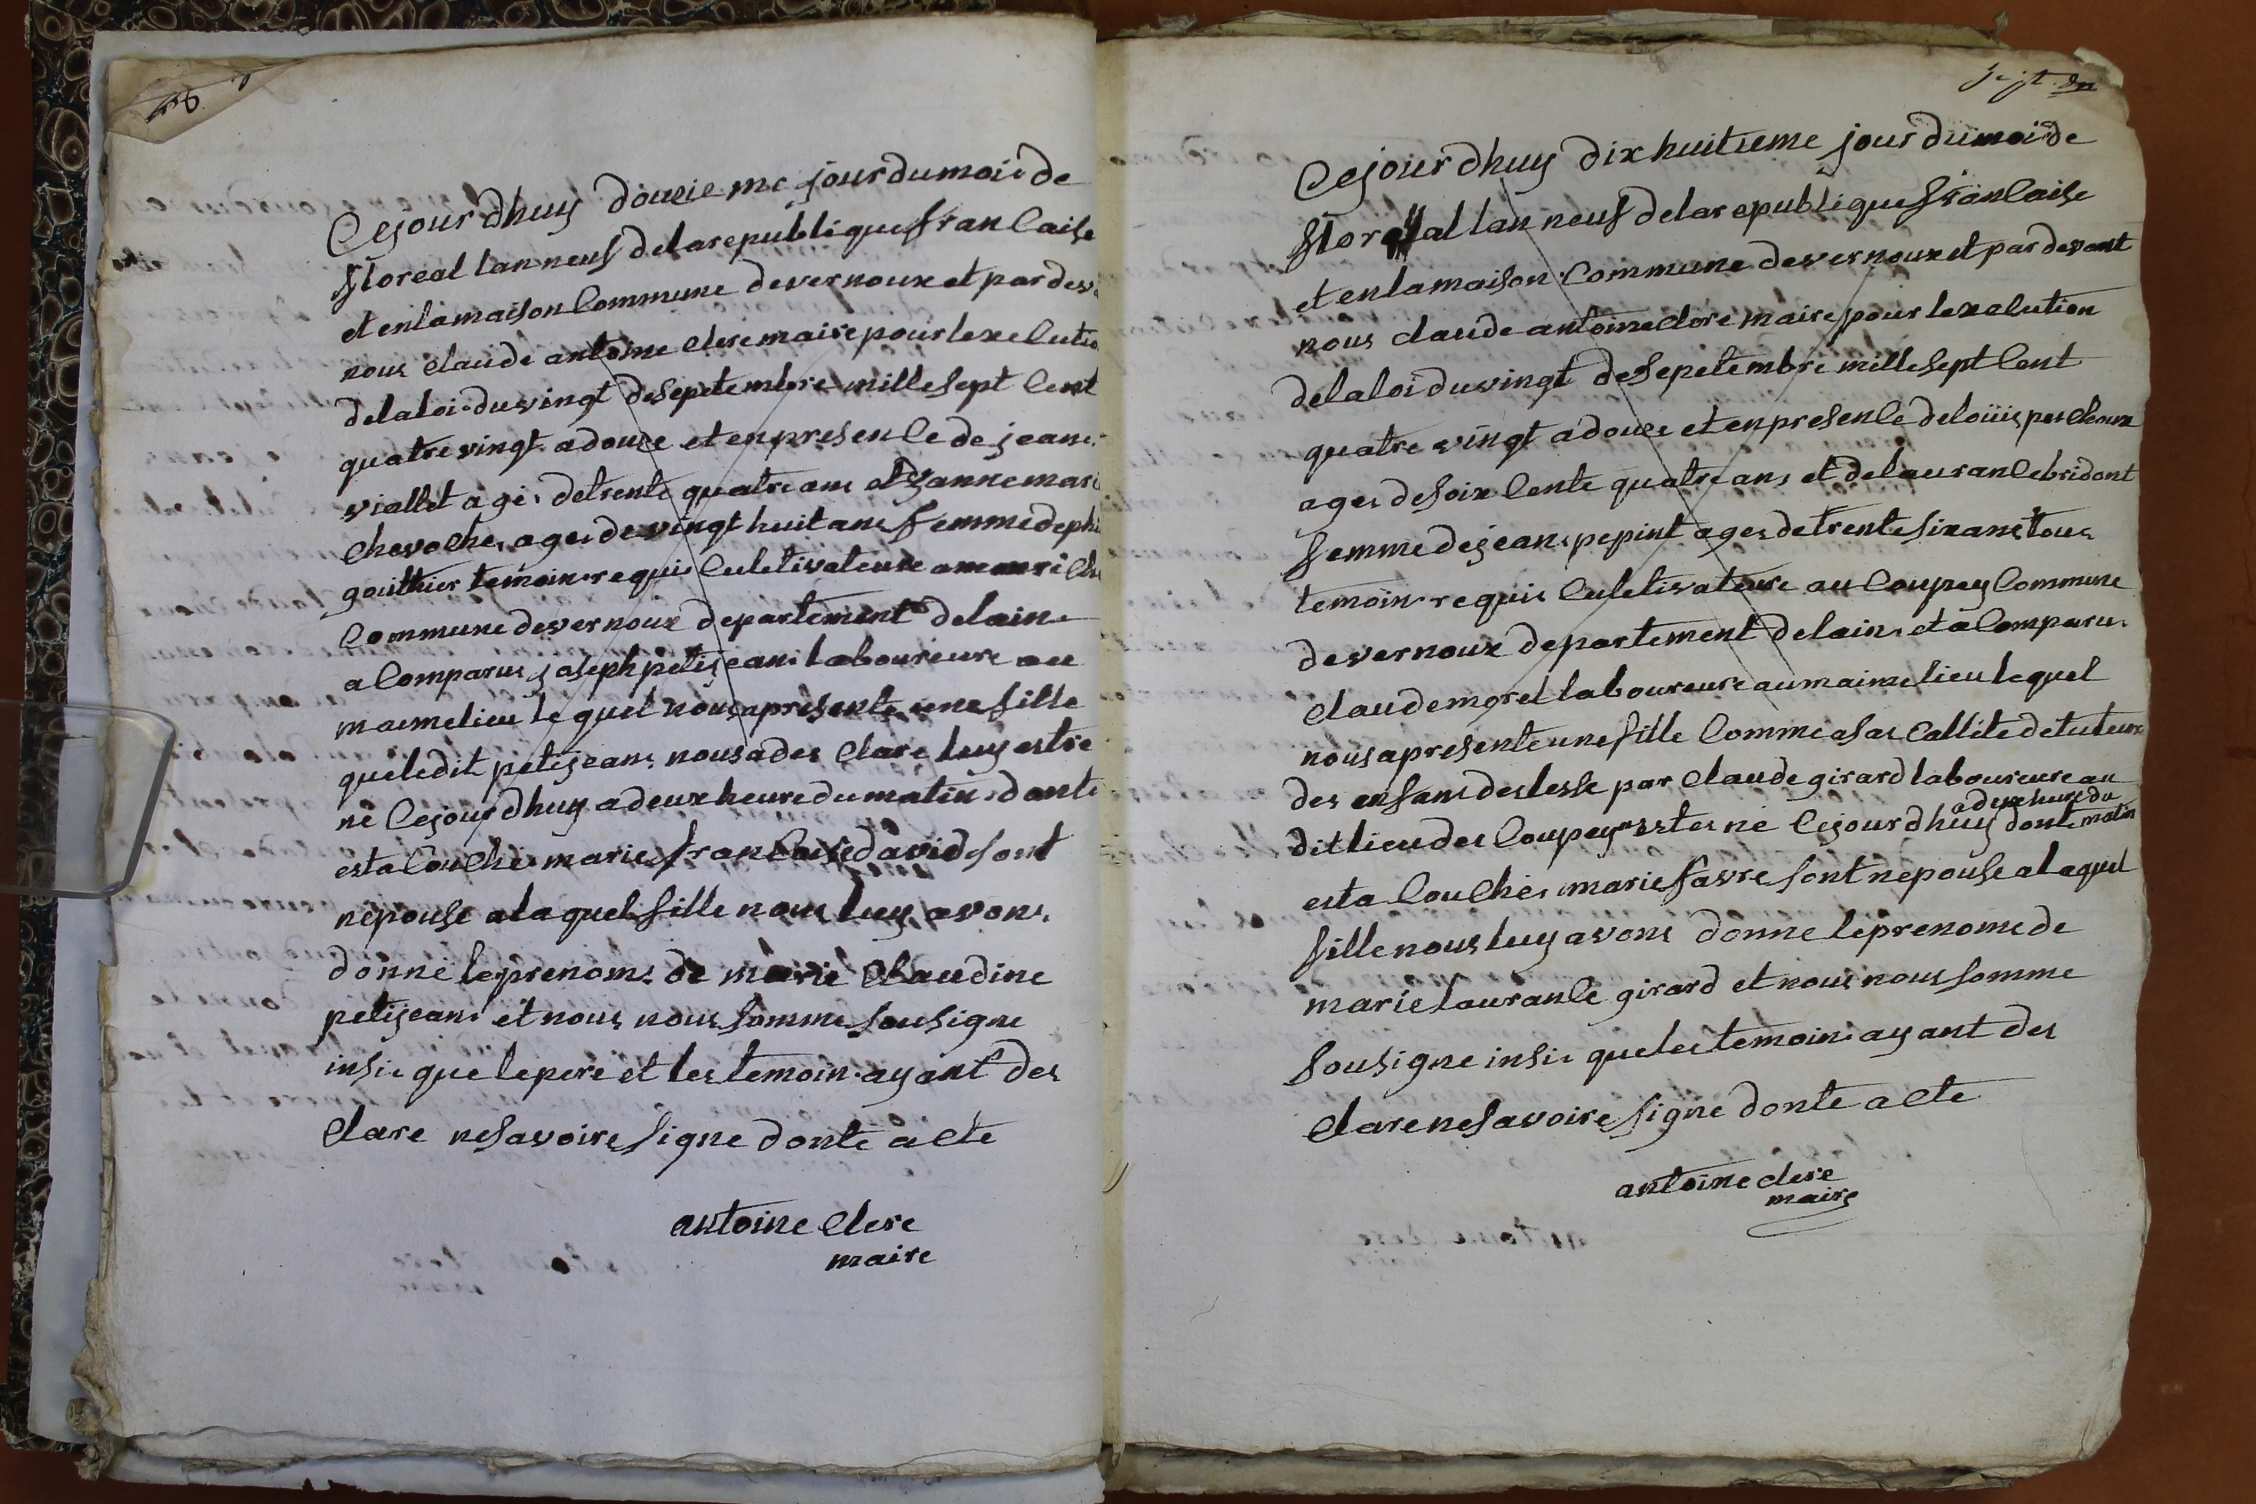 Cejourdhuy douzieme jour du mois de
floreal lan neuf de la republique francaise
et en la maison Commune de vernoux et par dev
nous claude antoine clere maire pour lexecutio
de la loi du vingt de sepetembre mille sept Cent
quatre vingt a douze et en presence de jean
viallet agés de trente quatre ans et danne mari
Chevoche ages de vingt huit ans femme de phi
gouthier temoins requis Culetivateure a
Commune de vernoux departement de lain
a Comparus joseph petijeans laboureure au
maime lieu le quel nous a presente une fille
que le dit petijeans nous a des Clare luy estre
né Cejourdhuy a deux heure du matin donte
est a Couché marie francoise david sont
nepouse a laquel fille nous luy avons
donné le prenoms de marie Claudine
petijeans et nous nous somme sousigne
insis que le pere et les temoins ayant des
Clare ne savoire signe donte acte
antoine Clere
maire
sept
Cejourdhuy dix huitieme jour du mois de
floreal lan neuf de la republique francaise
et en la maison Commune de vernoux et par devant
nous claude antoine clere maire pour lexecution
de la loi du vingt de sepetembre mille sept Cent
quatre vingt a douze et en presence de loüis percheux
ages de soix Cente quatre ans et de laurance bridont
femme de jeans pepint ages de trente six ans tous
temoins requis Culetivateure au Coupey Commune
de vernoux departement de lains et a Comparus
Claude morel laboureure au maime lieu le quel
nous a presente une fille Comme a sas Callite de tuteur
des enfans deslesse par Claude girard laboureure au
dit lieu des Coupey estes né Cejourdhuy a deux heure du matin donte
est a Couchés marie favre sont nepouse a laquel
fille nous luy avons donne le prenoms de
marie laurance girard et nous nous somme
sousigne insis que les temoins ayant des
Clare ne savoire signe donte acte
antoine clere
maire